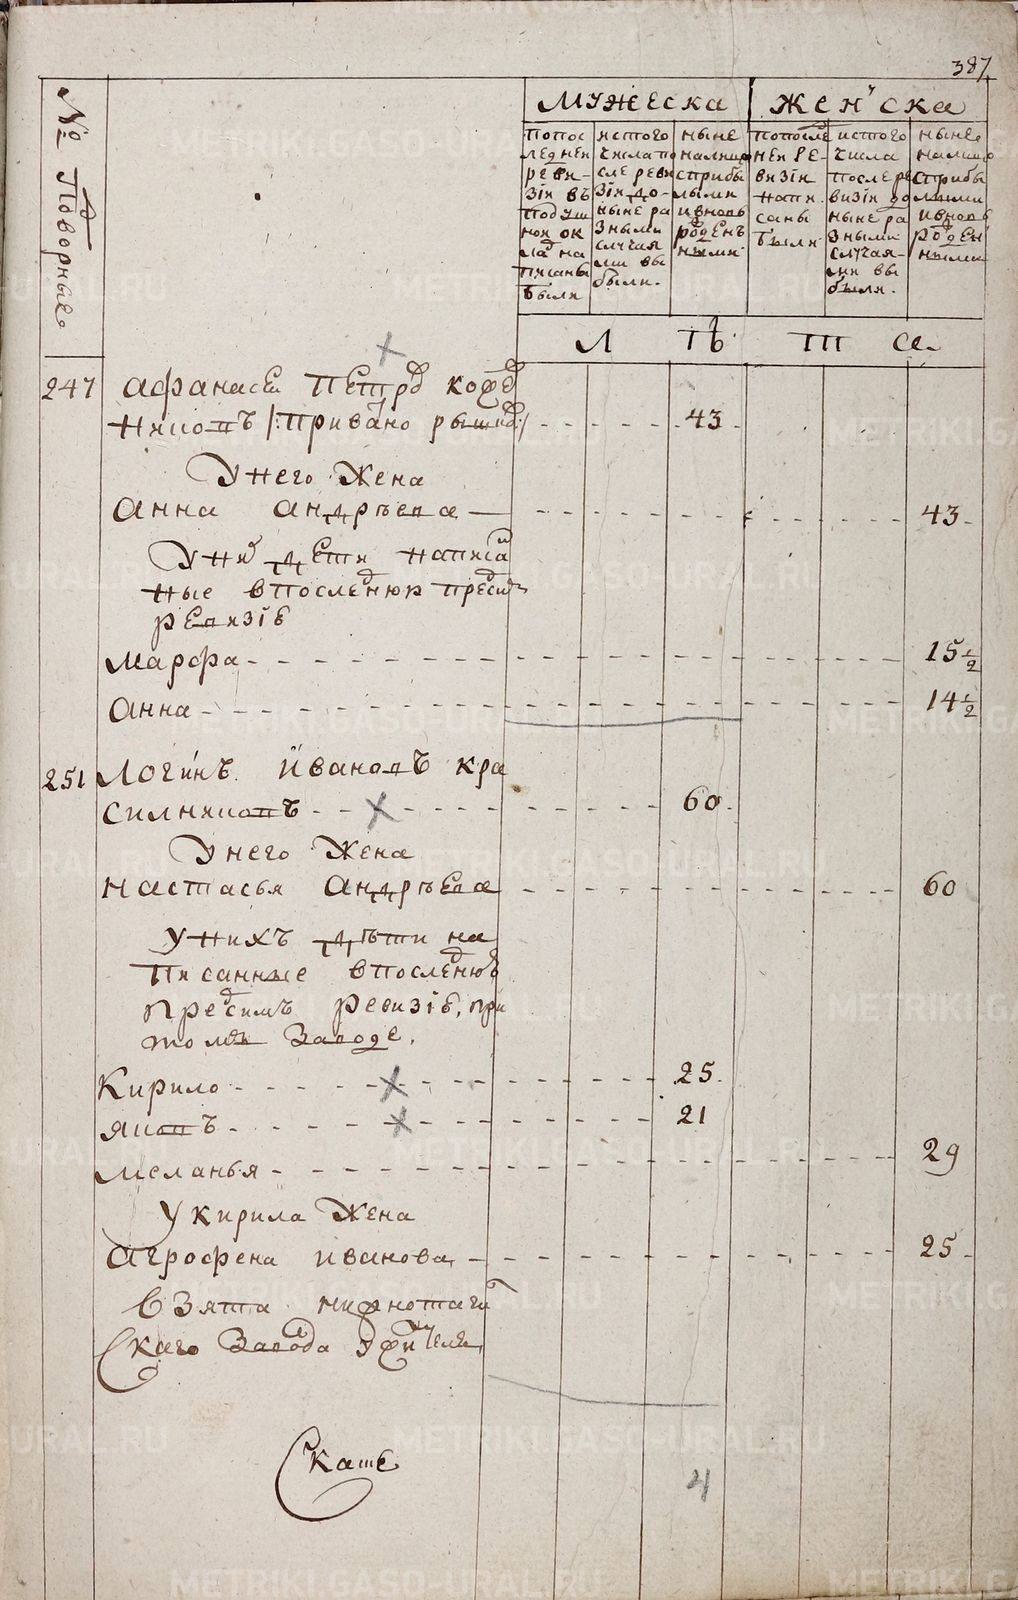 387
№ Подворные
мужеска
жен'ска
попос
леднеи
реви-
зіи въ
подуш
нои ок
ладъ на
писаны
были
истого
числа по
сле реви
зіи до-
ныне ра
зными
случая
ми вы
были.
ныне
налицо
сприбы
лыми
ивновъ
рожден
ными
попосле
неи ре-
визіи
напи
саны
были
истого
числа
после ре
визіи до
ныне ра
зными
случая-
ми вы
были.
ныне
налицо
сприбы
лыми
ивновъ
рожден
ными
Л ѣ т а
247 афанасеи Петров коже
няковъ /: 43
Унего Жена
Анна Андрѣева — 43
Уних дети написа
ные впоследнюю пред сим
ревизіе
Марфа 15 1/2
Анна 14 1/2
251 Логинъ ивановъ кра
силниковъ 60
Унего Жена
Настасья Андрѣева 60
Унихъ дѣти на
писанные впоследнюю
предсимъ ревизіе, при
томъ Заводе.
Кирило 25
яковъ 21
меланья 29
Укирила Жена
Агрофена иванова 25
Взята нижнотаги
Скаго Завода
Скаске
4
METRIKI.GASO-URAL.RU